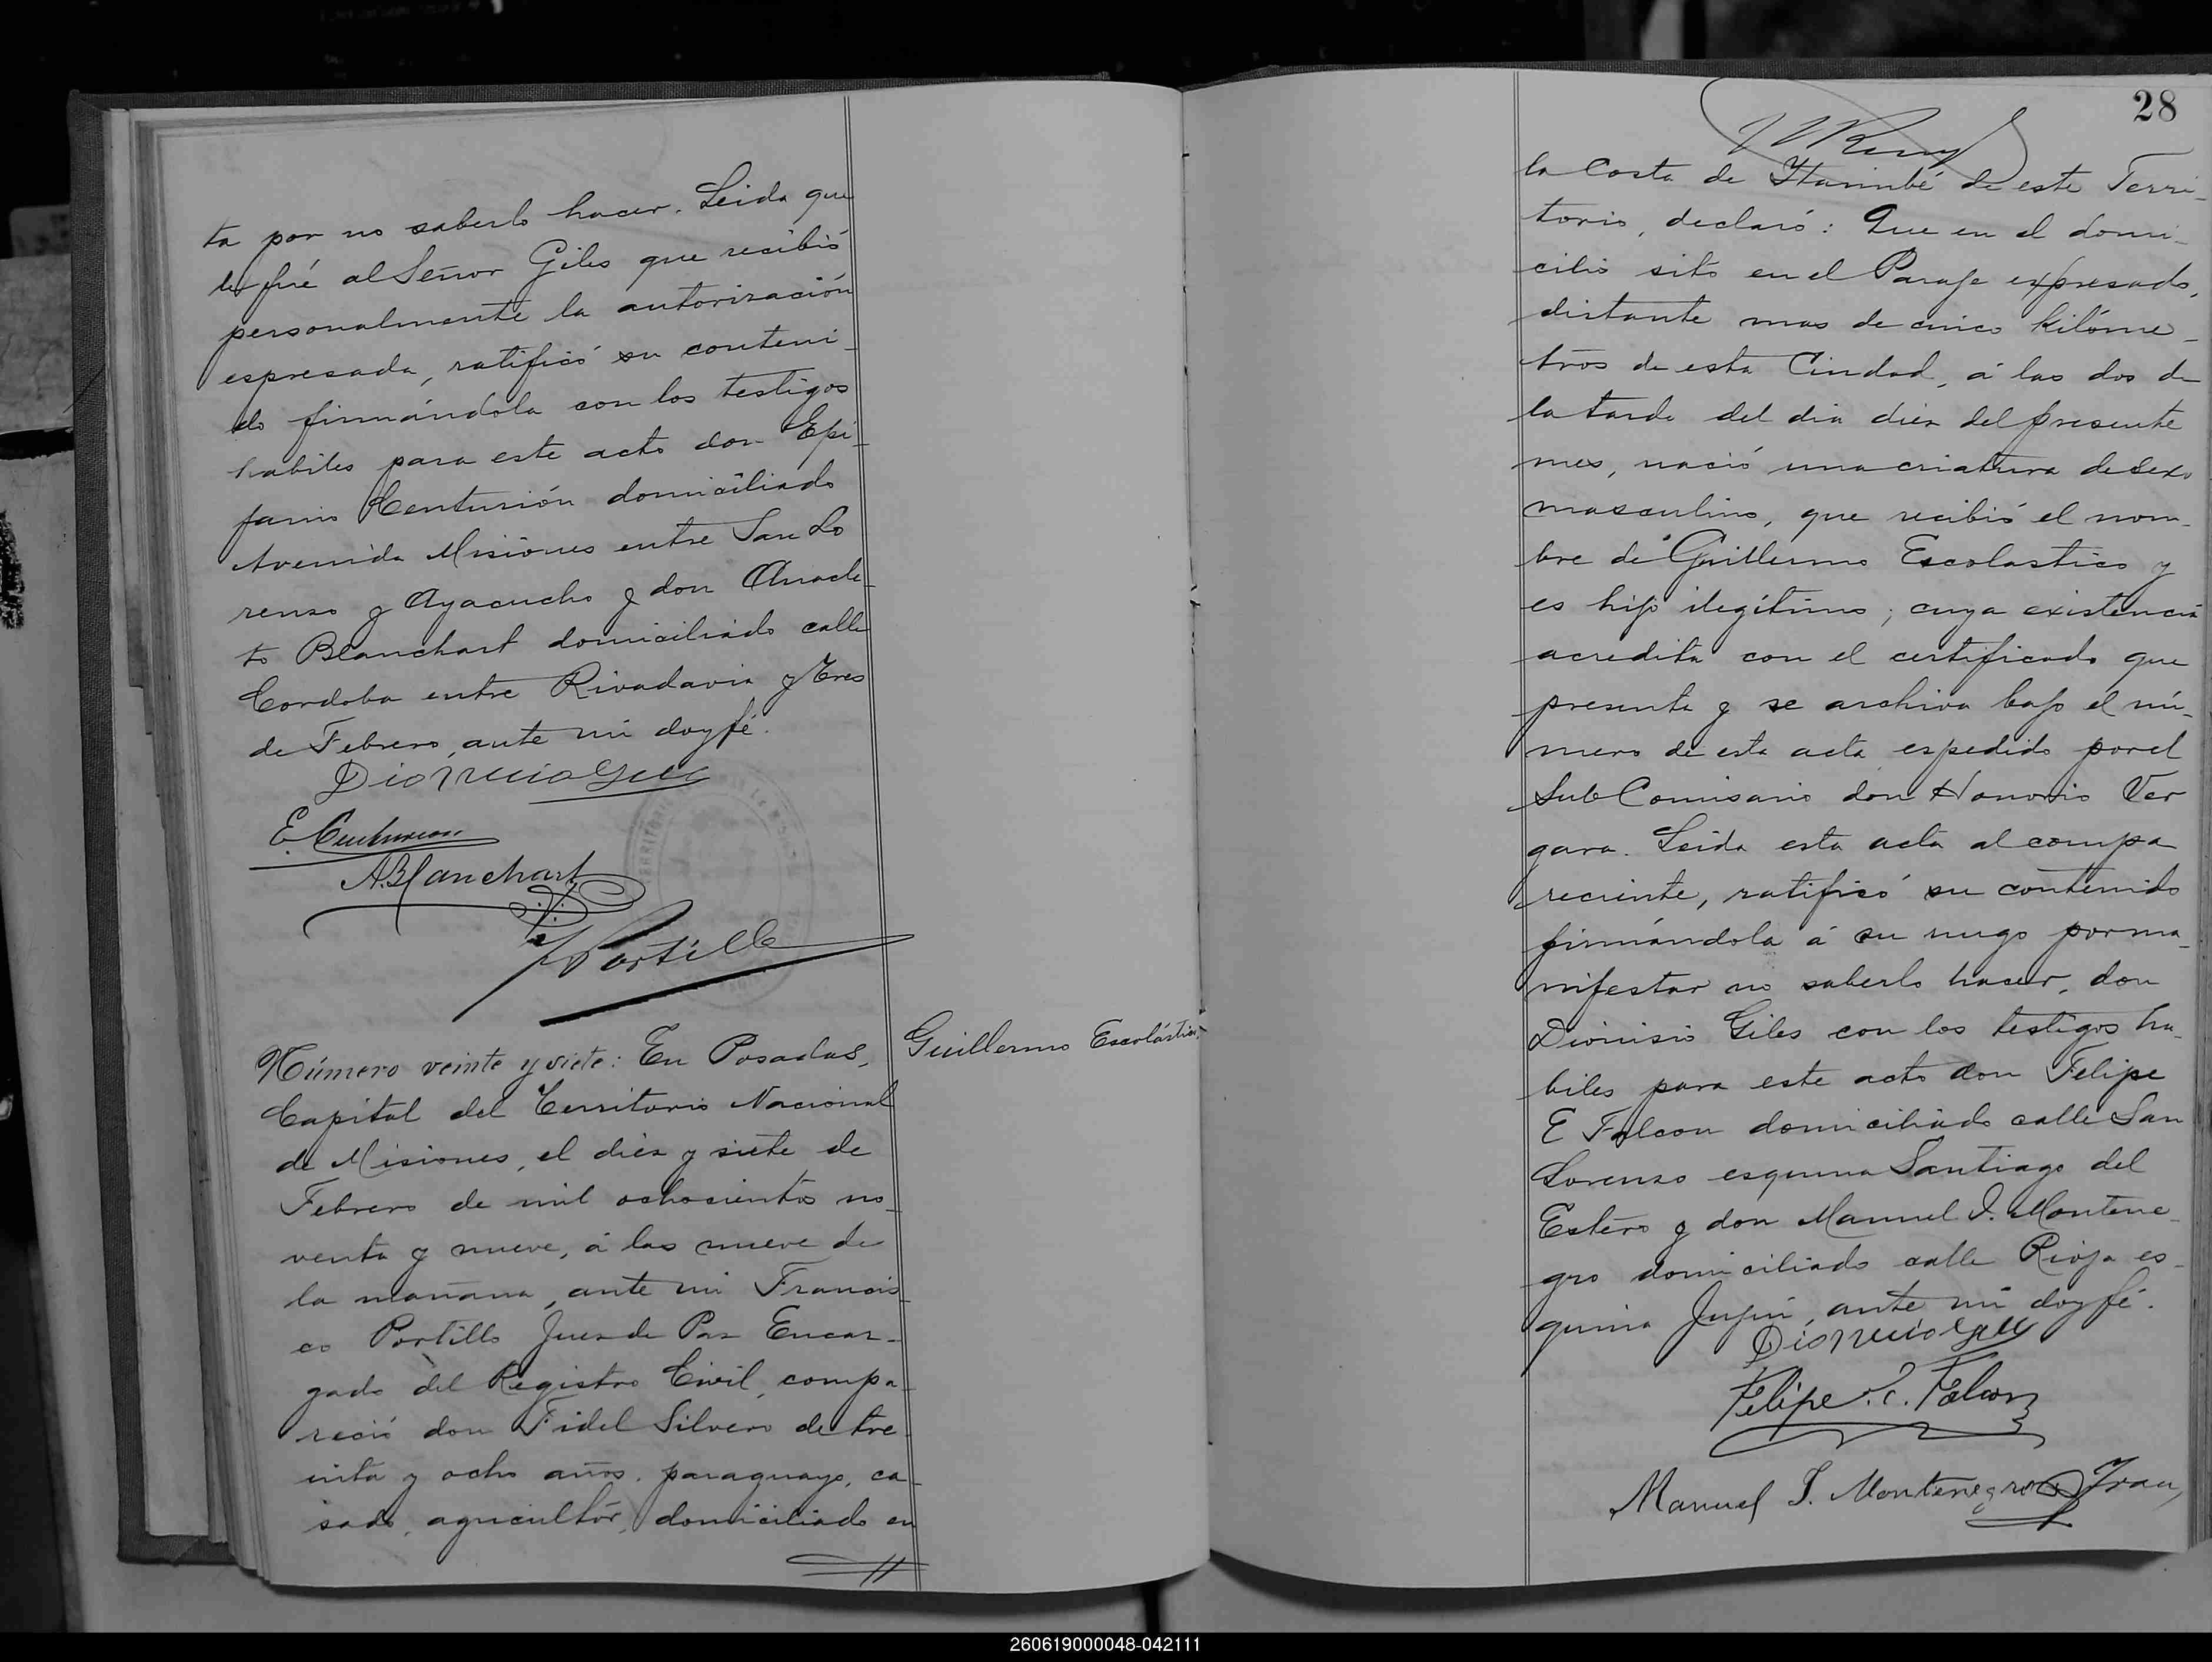 ta por no saberlo hacer. Leida que
le fué al Señor Giles que recibió
personalmente la autorización
espresada, ratificó su conteni-
do firmándola con los testigos
habiles para este acto don Epi-
fanio Centurión domiciliado
Avenida Misiones entre San Lo
renso y Ayacucho y don Anacle-
to Blanchart domiciliado calle
Cordoba entre Rivadavia y Tres
de Febrero, ante mi doy fé.
Dionicio Giles
E. Centurion
A. Blanchart
Portillo
Número veinte y siete: En Posadas,
Guillermo Escolástico
Capital del Territorio Nacional
de Misiones, el diez y siete de
Febrero de mil ochocientos no-
venta y nueve, á las nueve de
la mañana, ante mi Francis-
co Portillo Juez de Paz Encar-
gado del Registro Civil, compa-
reció don Fidel Silvero de tre
inta y ocho años, paraguayo, ca-
sado, agricultor, domiciliado en
28
la Costa de Itarimbé de este Terri-
torio, declaró: Que en el domi-
cilio sito en el Paraje expresado,
distante mas de cinco kilóme-
tros de esta Ciudad, á las dos de
la tarde del dia diez del presente
mes, nació una criatura de sexo
masculino, que recibió el nom-
bre de Guillermo Escolastico y
es hijo ilegítimo; cuya existencia
acredita con el certificado que
presenta y se archiva bajo el nú-
mero de esta acta espedido por el
Sub Comisario don Honorio Ver
gara. Leida esta acta al compa
reciente, ratificó su contenido
firmándola á su ruego por ma-
nifestar no saberlo hacer, don
Dionisio Giles con los testigos há-
biles para este acto don Felipe
E Falcon domiciliado calle San
Lorenso esquina Santiago del
Estero y don Manuel I. Montene-
gro domiciliado calle Rioja es-
quina Junin, ante mi doy fé.
Dionicio Giles
Felipe E. Falcon
Manuel I. Montenegro Fran,